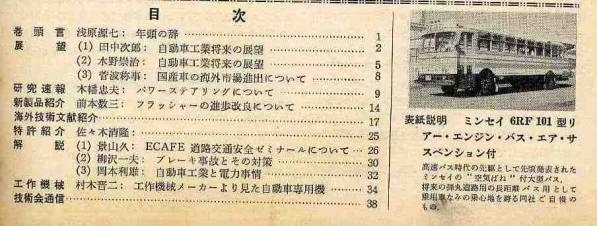 目 次
巻頭言 浅原源七: 年頭の辞 1
展望 (1) 田中次郎: 自動車工業将来の展望 2
(2) 水野崇治: 自動車工業将来の展望 5
(3) 菅波称事: 国産車の海外市場進出について 8
研究速報 木幡忠夫: パワーステアリングについて 9
新製品紹介 前本数三: フラッシャーの進歩改良について 14
海外技術文献紹介 17
特許紹介 佐々木清隆: 25
解説 (1) 景山久: ECAFE 道路交通安全ゼミナールについて 26
(2) 柳沢一夫: ブレーキ事故とその対策 30
(3) 岡本利雄: 自動車工業と電力事情 32
工作機械 村木晋二: 工作機械メーカーより見た自動車専用機 34
技術会通信 38
表紙説明 ミンセイ 6RF 101 型リ
アー・エンジン・バス・エア・サ
スペンション付
高速バス時代の先駆として先頃発表された
ミンセイの "空気ばね" 付大型バス。
将来の弾丸道路用の長距離バス用として
乗用車なみの乗心地を誇る同社ご自慢の
もの。